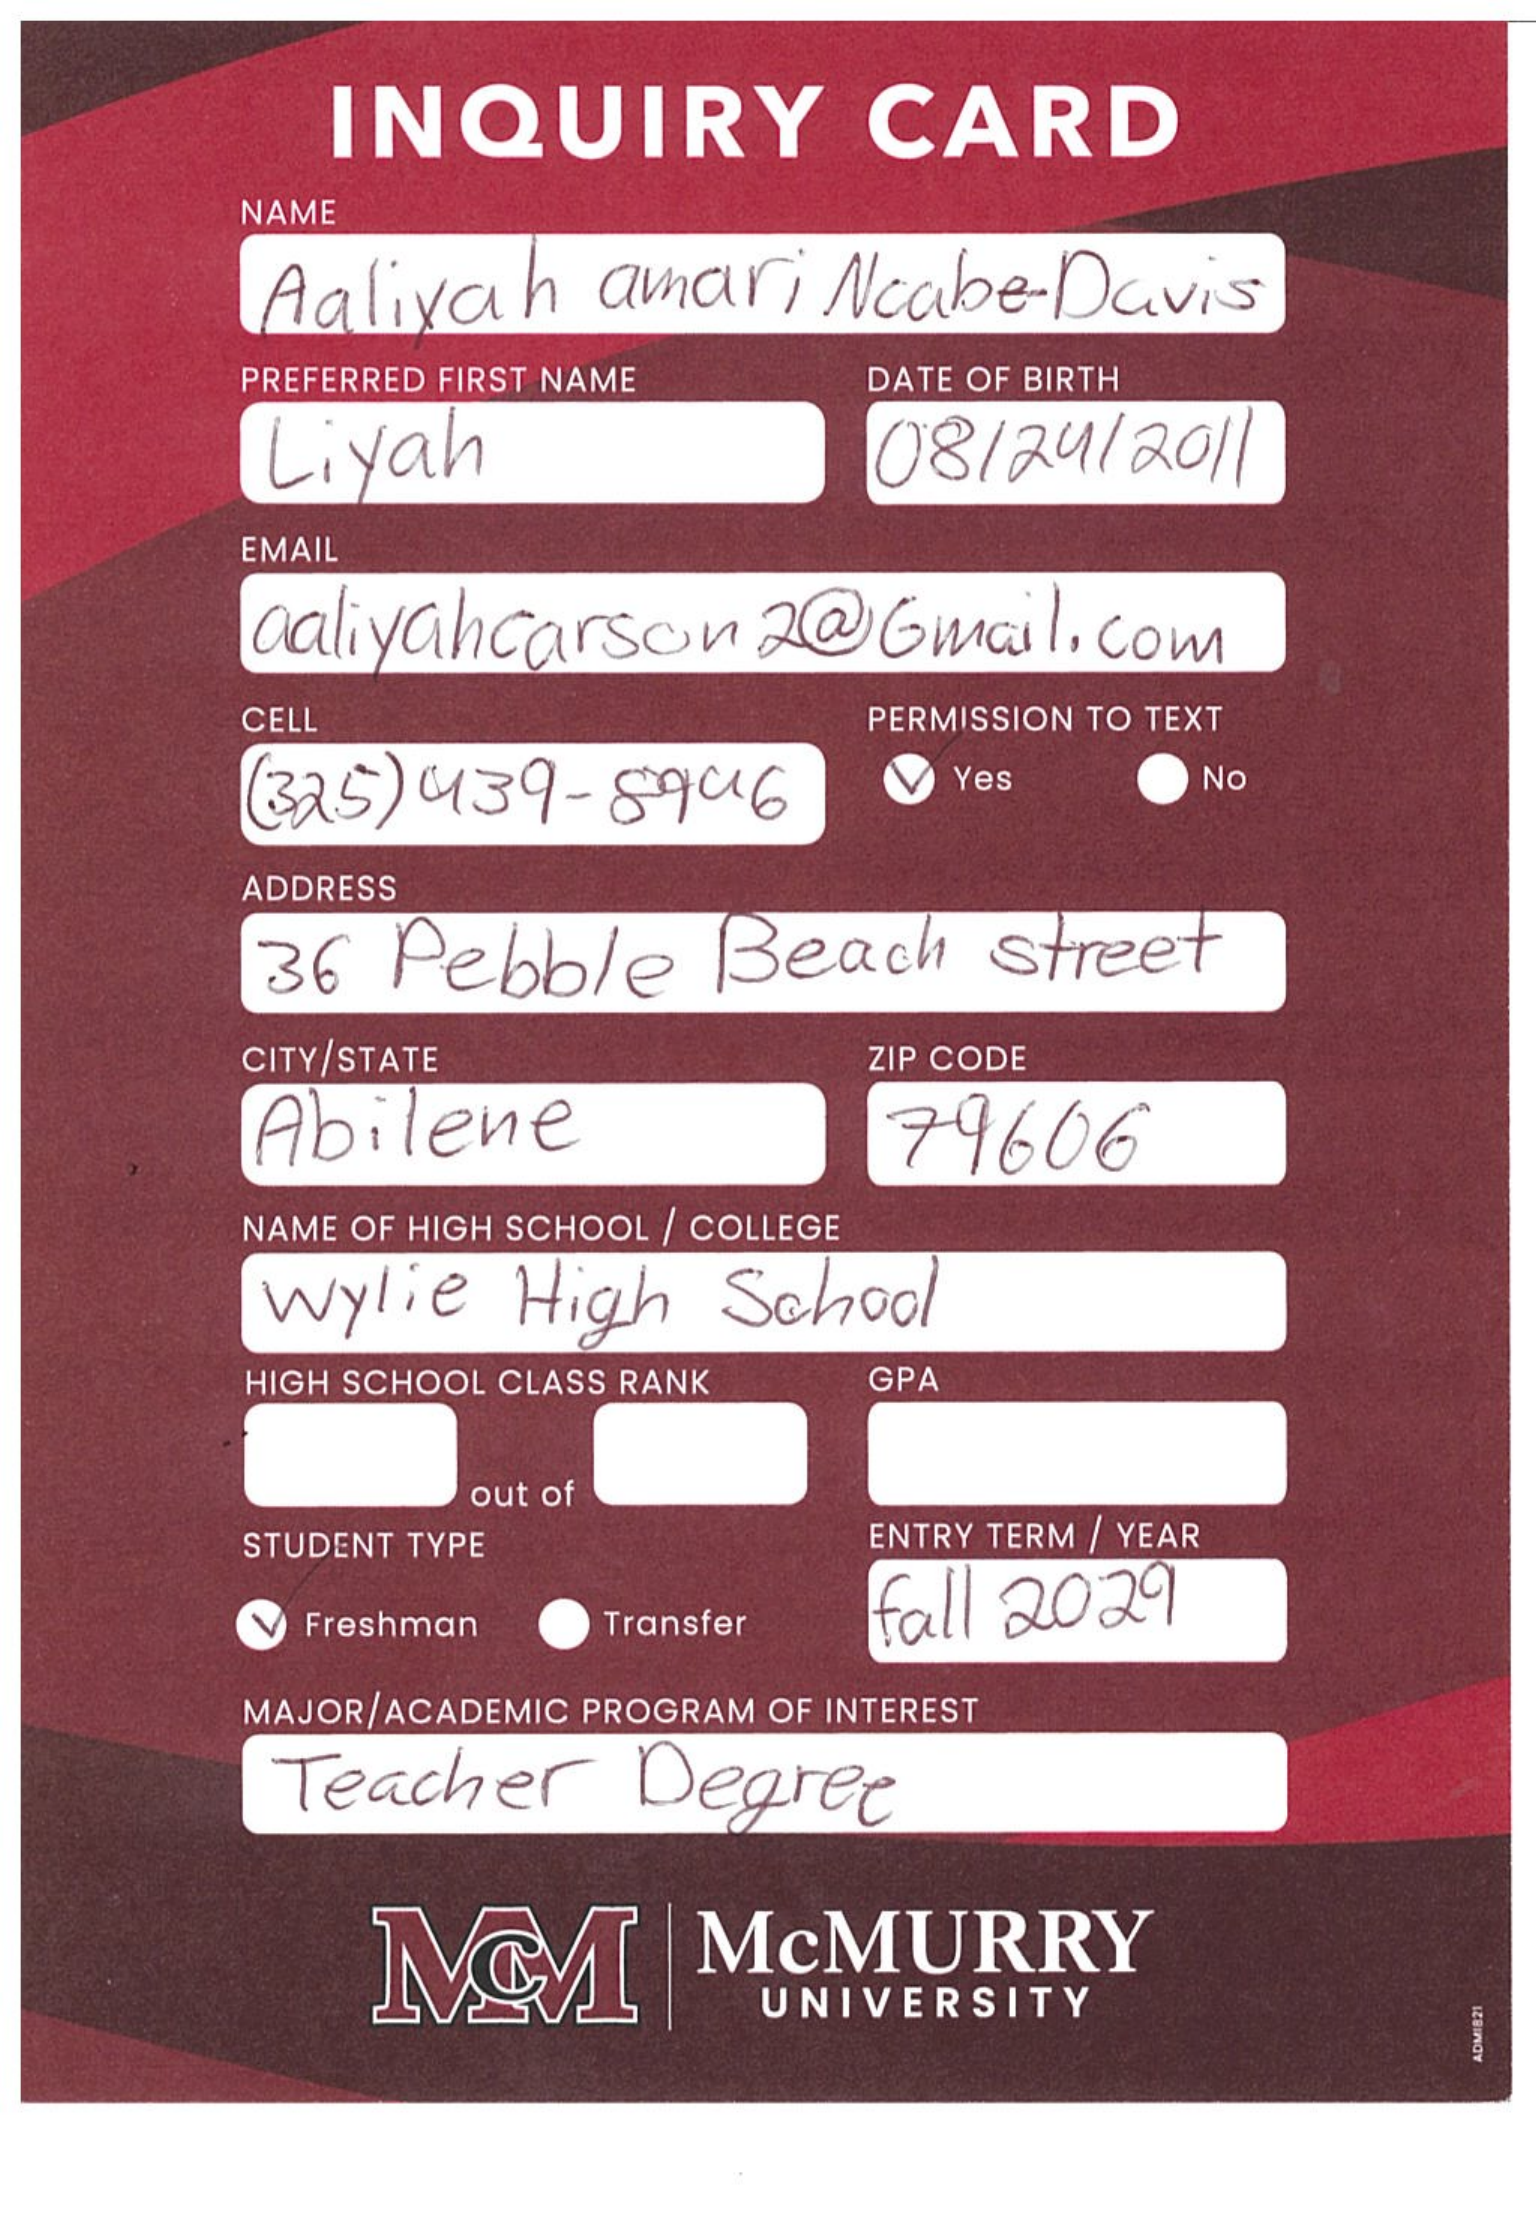 INQUIRY CARD
NAME
Aaliyah amari Ncabe-Davis
PREFERRED FIRST NAME DATE OF BIRTH
Liyah 08/24/2011
EMAIL
aaliyahcarson2@Gmail.com
CELL PERMISSION TO TEXT
(325)439-8946 Yes No
ADDRESS
36 Pebble Beach street
CITY/STATE ZIP CODE
Abilene 79606
NAME OF HIGH SCHOOL / COLLEGE
Wylie High School
HIGH SCHOOL CLASS RANK GPA
out of
STUDENT TYPE ENTRY TERM / YEAR
Freshman Transfer fall 2029
MAJOR/ACADEMIC PROGRAM OF INTEREST
Teacher Degree
McM McMURRY
UNIVERSITY
ADM1821